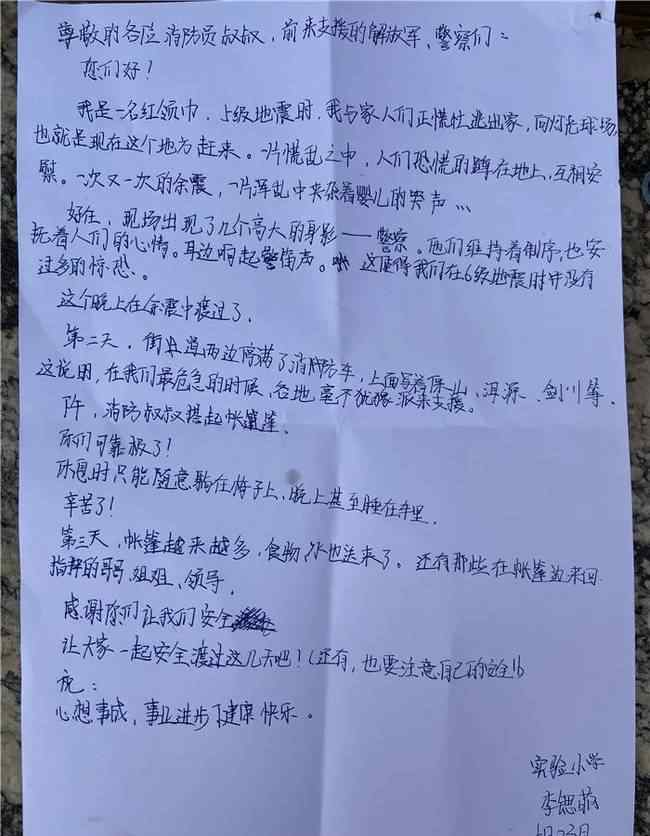 尊敬的各位消防员叔叔，前来支援的解放军、警察们：
您们好！
我是一名红领巾，5级地震时，我与家人们正慌忙逃出家，向灯光球场，
也就是现在这个地方赶来。一片慌乱之中，人们恐慌的蹲在地上，互相安
慰。一次又一次的余震，一片浑乱中夹杂着婴儿的哭声…
好在，现场出现了几个高大的身影——警察。他们维持着制序，也安
抚着人们的心情。耳边响起警笛声。这使得我们在6级地震时并没有
过多的惊恐。
这个晚上在余震中渡过了，
第二天，街道两边停满了消防车，上面写着保山、洱源、剑川等，
这说明，在我们最危急的时候，各地毫不犹豫派来支援。
下午，消防叔叔搭起帐篷，
你们可靠极了！
休息时只能随意躺在椅子上，晚上甚至睡在车里，
辛苦了！
第三天，帐篷越来越多，食物、水也送来了。还有那些在帐篷边来回
指挥的哥哥、姐姐、领导，
感谢你们让我们安全
让大家一起安全渡过这几天吧！（还有，也要注意自己的安全！）
祝：
心想事成，事业进步，健康快乐。
实验小学
李